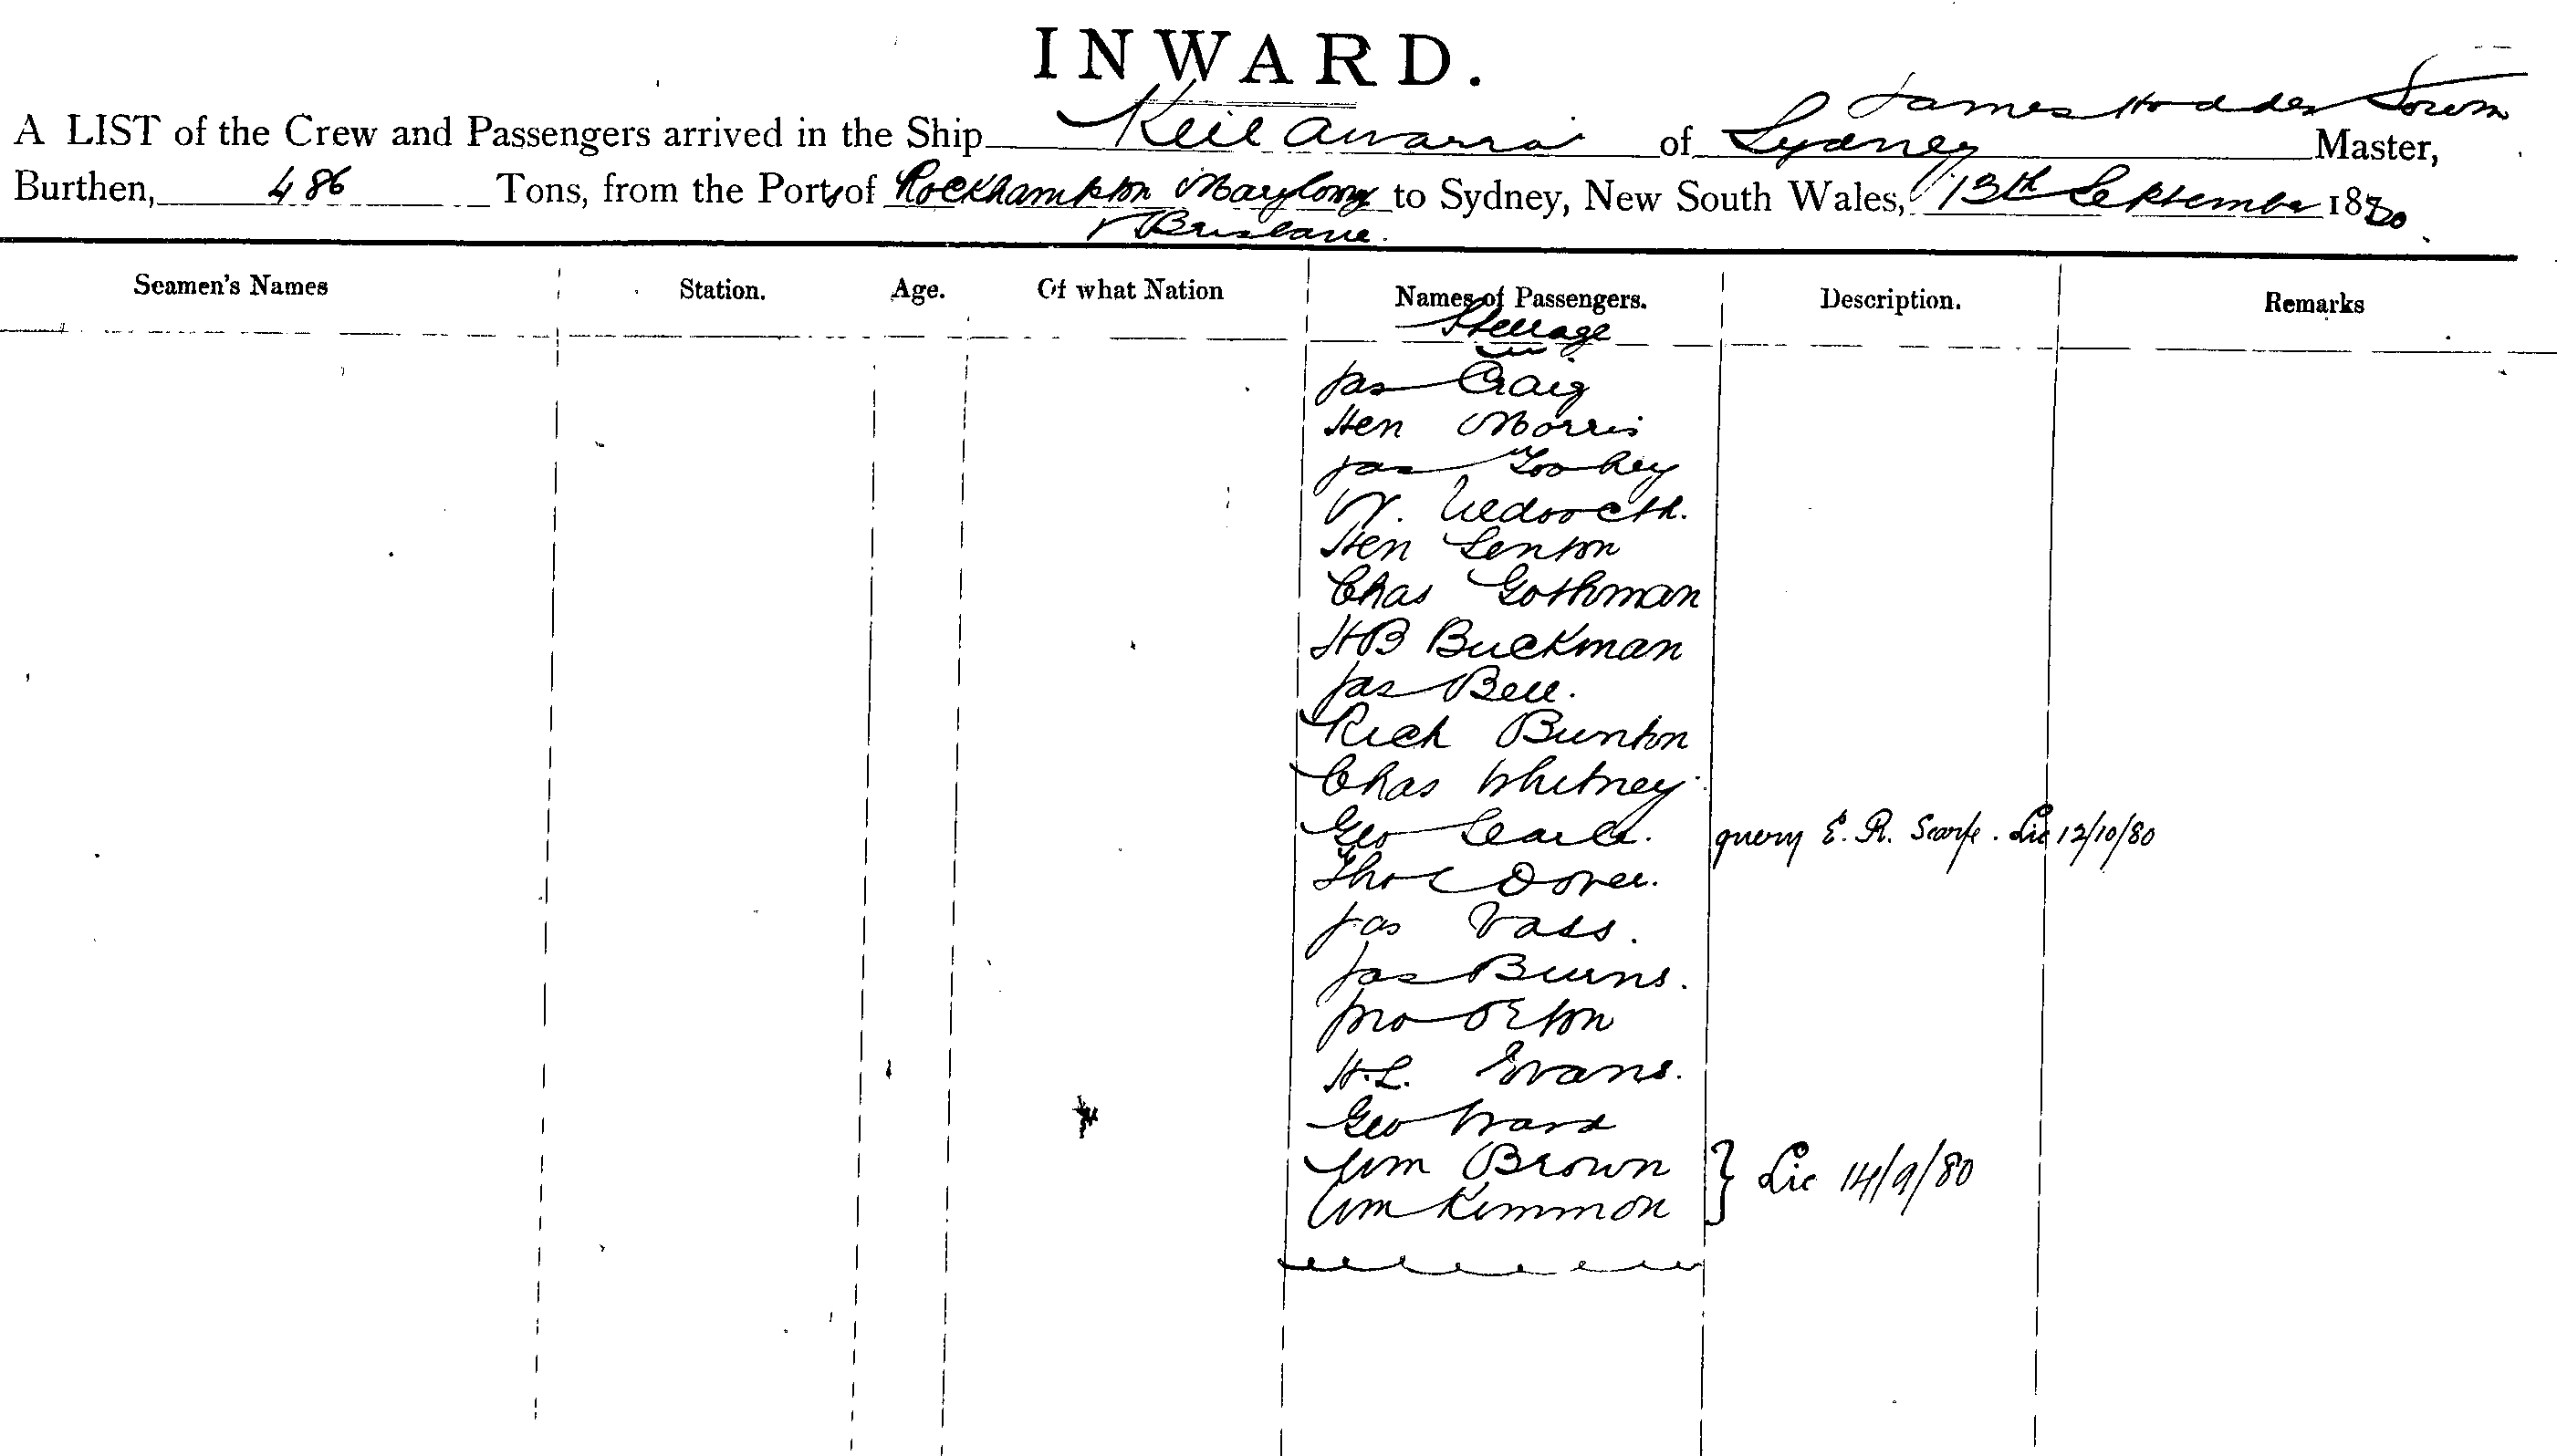 INWARD.
James Hodder
A LIST of the Crew and Passengers arrived in the Ship Keilawarra of Sydney Master,
Burthen, 486 Tons, from the Ports of Rockhampton Maryboro to Sydney, New South Wales, 13th September 1880
& Brisbane.
Seamen's Names Station. Age. Of what Nation Names of Passengers. Description. Remarks
Steerage
Jas Craig
Hen Morris
Jas
W.
Hen Lenton
Chas Gothman
HB Buckman
Jas Bell.
Rich Bunton
Chas Whitney.
Geo Searle. query E. R. Scarfe. Lic 12/10/80
Thos Dover.
Jas Vass.
Jas Burns.
Jno Orton
H.L. Evans.
Geo Ward
Wm Brown } Lic 14/9/80
Wm Kimmon